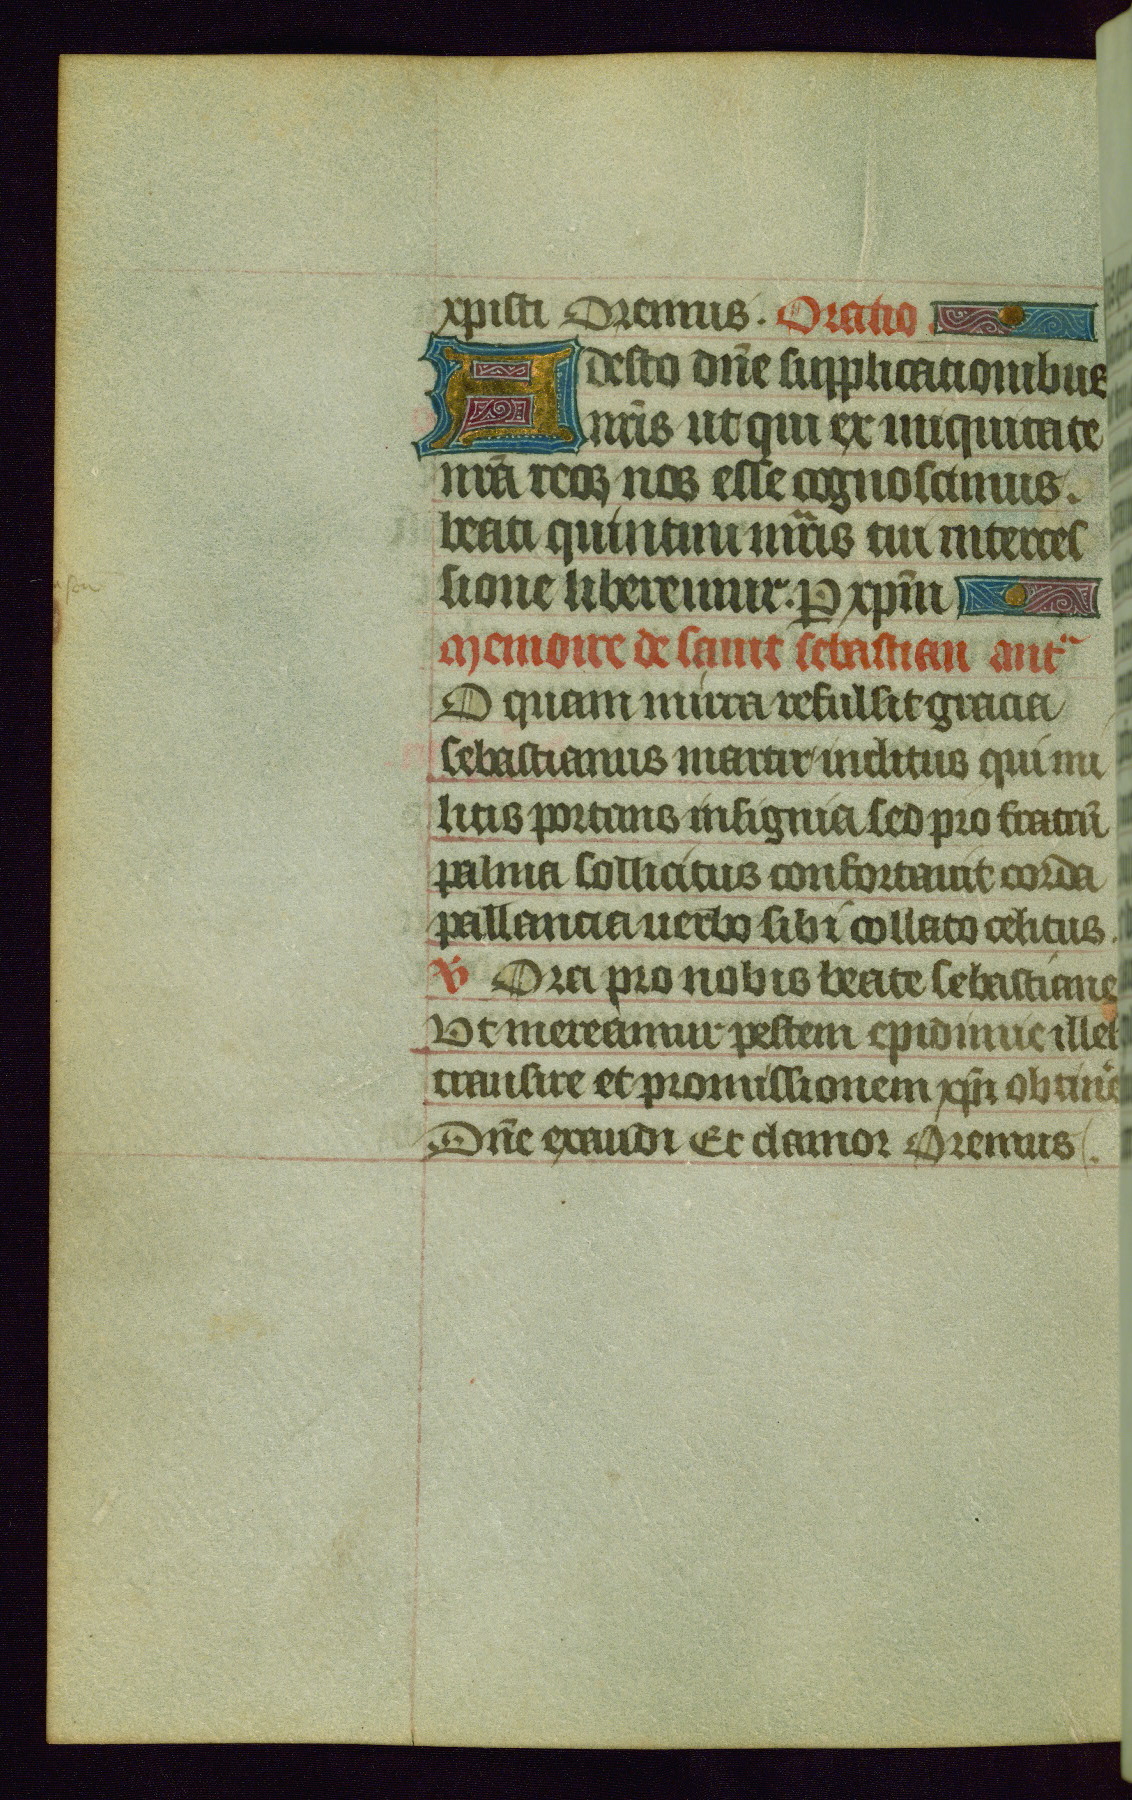 xpisti Oremus. Oratio.
Adesto dn̄e supplicationibus
nr̄is ut qui ex iniquitate
nr̄a reos nos esse cognoscimus.
beati quintini mr̄is tui interces
sione liberemur. P xpm̄
Memoire de saint sebastian ant
O quam mira refulsit gracia
sebastianus martir inclitus qui mi
litis portans insignia sed pro fratrū
palma sollicitus confortauit corda
pallancia uerbo sibi collato celitus.
V̄ Ora pro nobis beate sebastiane
Vt mereamur pestem epidimie illes
transire et promissionem xp̄i
Dn̄e exaudi Et clamor Oremus.